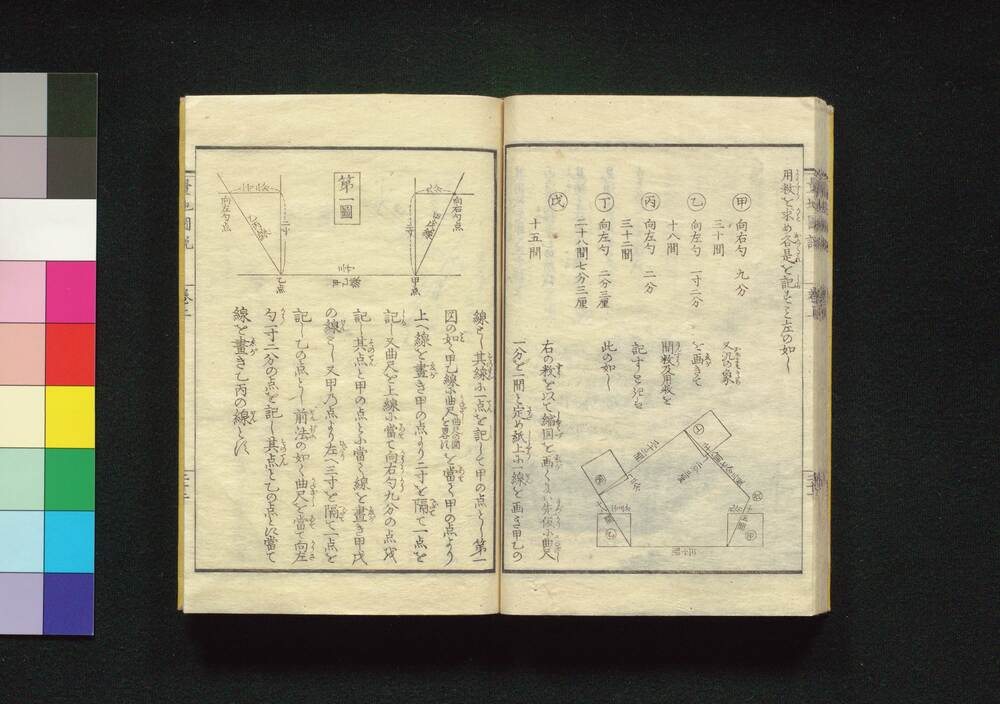 用数を求め各是を記すこと左の如し
甲 向右勾 九分
三十間
乙 向左勾 一寸二分
十八間
丙 向左勾 二分
三十二間
丁 向左勾 二分三厘
二十八間七分三厘
戊
十五間
を画きて
間数及用数を
記すること
此の如し
右の数を以て縮図を画くには先仮に曲尺
一分を一間と定め紙上に一線を画き甲乙の
線とし其線に一点を記して甲の点とし第一
図の如く甲乙線に曲尺を當て甲の点より
上へ線を畫き甲の点より二寸を隔て一点を
記し又曲尺を上線に當て向右勾九分の点を
記し其点と甲の点とに當て線を畫き甲戊
の線とし又甲乃点より左へ三寸を隔て一点を
記し乙の点とし前法の如く曲尺を當て向左
勾一寸二分の点を記し其点と乙の点とに當て
線を畫き乙丙の線とす
第一圖
向右勾点
九分
二寸
甲点
三寸
乙点
二寸
向左勾点